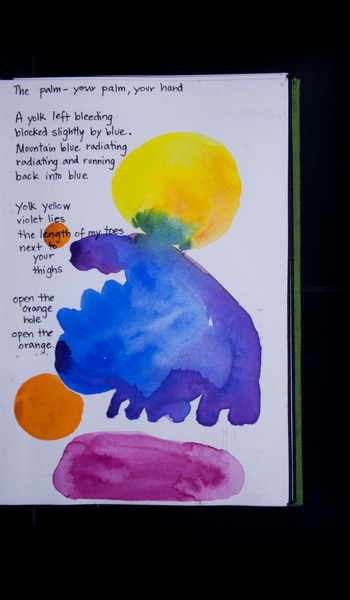 The palm – your palm, your hand
A yolk left bleeding
blocked slightly by blue.
Mountain blue radiating
radiating and running
back into blue
Yolk yellow
violet lies
the length of my toes
next to
your
thighs
open the
orange
hole
open the
orange...